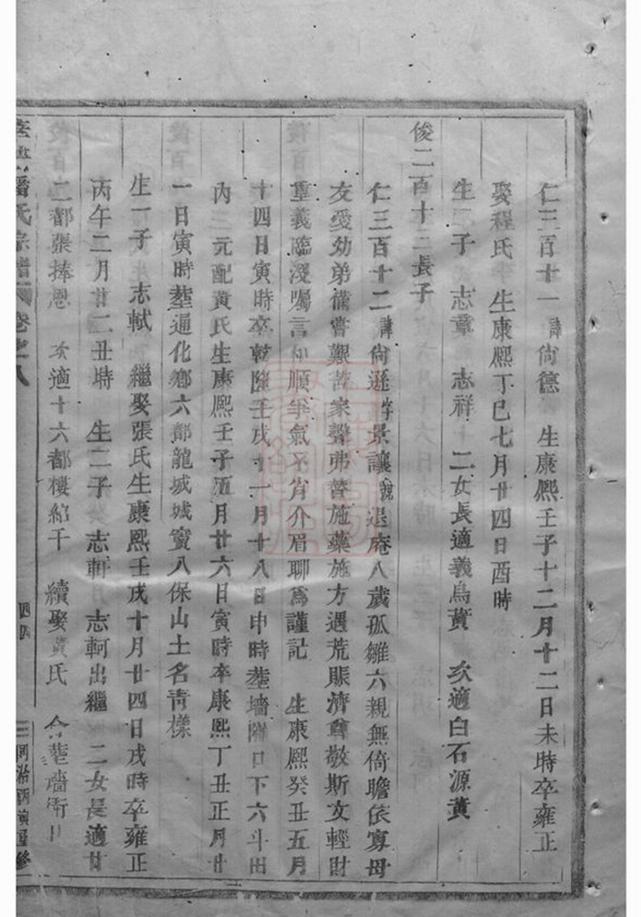 仁三百十一 諱尙德 生康熙壬子十二月十二日未時卒雍正
娶程氏 生康熙丁巳七月廿四日酉時
生二子 志羣 志祥 二女長適義烏黃 次適白石源黃
俊二百十二長子
仁三百十二 諱尙遜字景讓號退庵八歲孤雛六親無倚瞻依寡母
友愛幼弟備嘗艱苦家聲弗替施藥施方遇荒賑濟尊敬斯文輕財
重義臨沒囑言 順爭氣不肖介眉聊爲謹記 生康熙癸丑五月
十四日寅時卒乾隆壬戌十一月十八日申時塟墻 口下六斗田
內 元配黃氏生康熙壬子五月廿六日寅時卒康熙丁丑正月廿
一日寅時塟通化鄉六都龍城城竇八保山土名靑樣
生一子 志軾 繼娶張氏生康熙壬戌十月廿四日戌時卒雍正
丙午二月廿二丑時 生二子 志軒 志軻出繼 二女長適廿
二都張捧恩 次適十六都樓紹干 續娶黃氏 合塟墻衕口
潘氏宗譜 卷之八